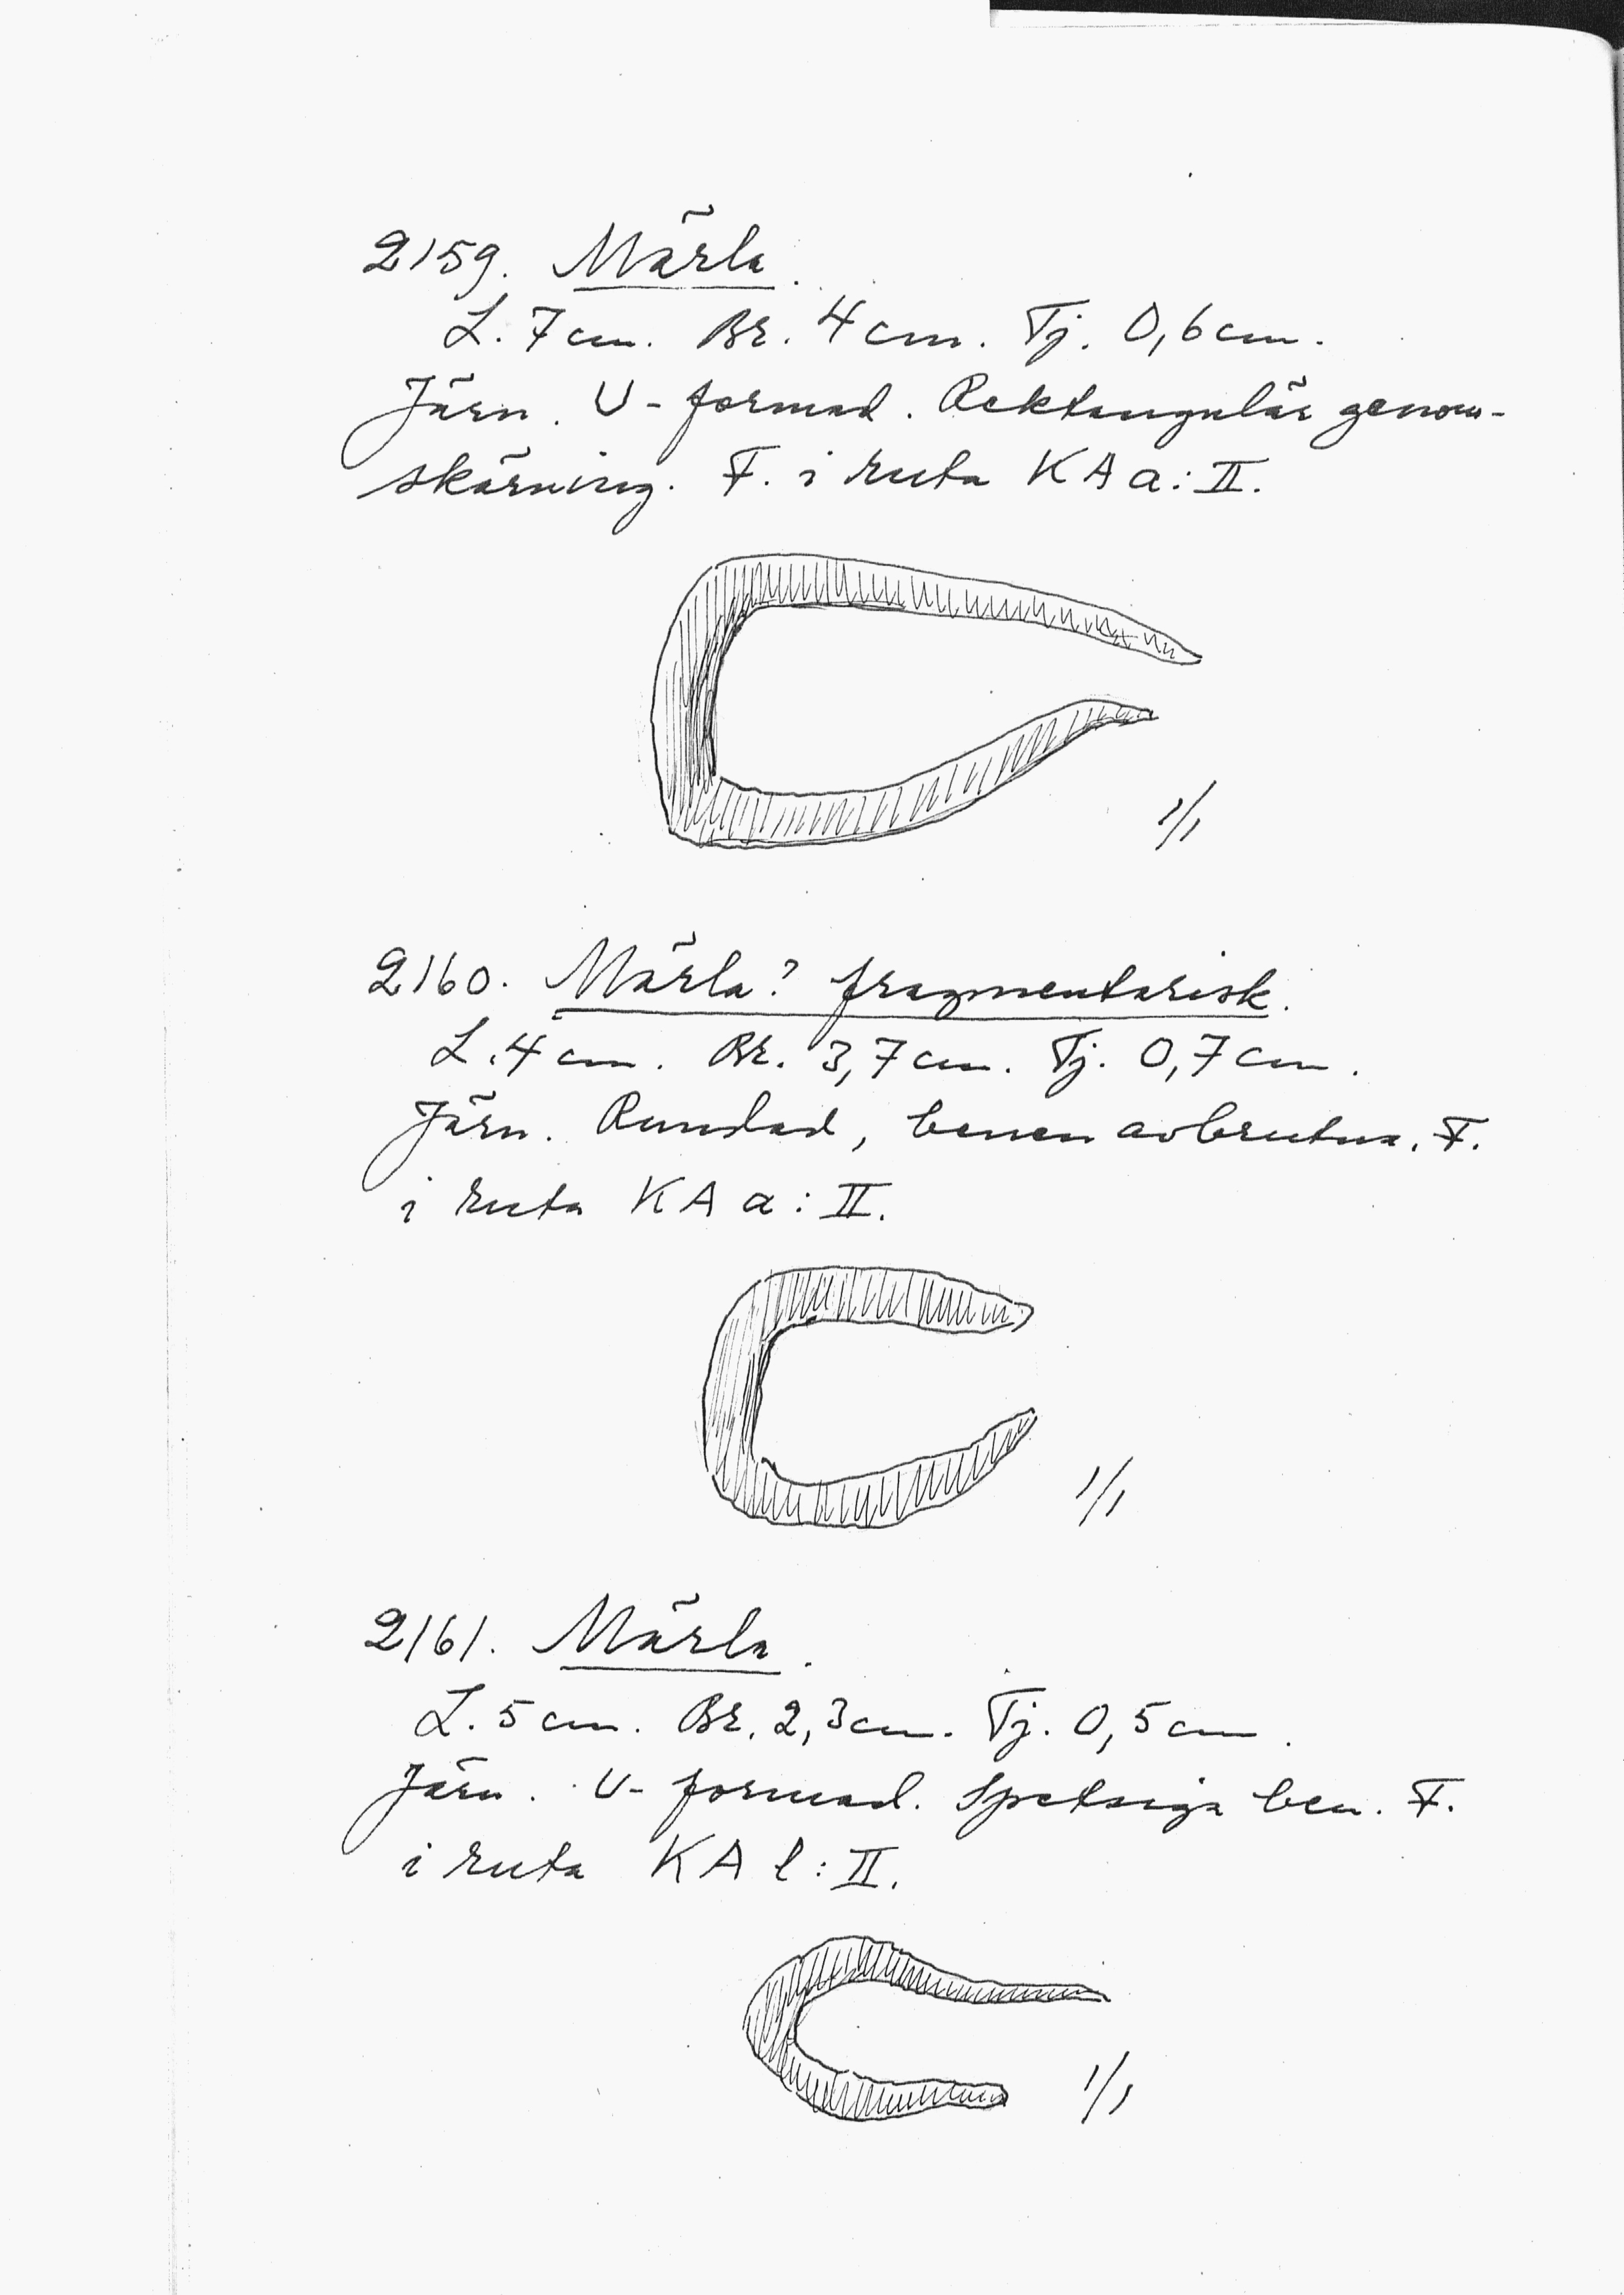 2159. Märla.
L. 7 cm. Br. 4 cm. Tj. 0,6 cm.
Järn. U-formad. Rektangulär genom-
skärning. F. i ruta KA a:II.
1/1
2160. Märla? fragmentarisk.
L. 4 cm. Br. 3,7 cm. Tj. 0,7 cm.
Järn. Rundad, benen avbrutna. F.
i ruta KA a:II.
1/1
2161. Märla.
L. 5 cm. Br. 2,3 cm. Tj. 0,5 cm.
Järn. U-formad. Spetsiga ben. F.
i ruta KA l:II.
1/1